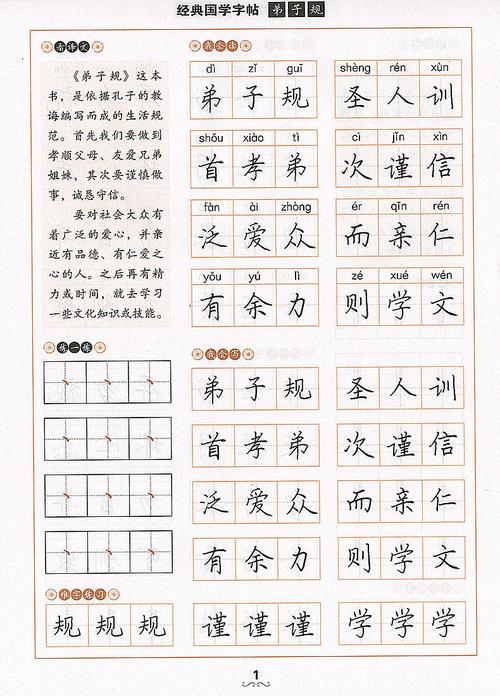 经典国学字帖 弟子规
看译文
《弟子规》这本
书，是依据孔子的教
诲编写而成的生活规
范。首先我们要做到
孝顺父母、友爱兄弟
姐妹，其次要谨慎做
事，诚恳守信。
要对社会大众有
着广泛的爱心，并亲
近有品德、有仁爱之
心的人。之后再有精
力或时间，就去学习
一些文化知识或技能。
我会读
dì zǐ guī shèng rén xùn
弟子规 圣人训
shǒu xiào tì cì jǐn xìn
首孝弟 次谨信
fàn ài zhòng ér qīn rén
泛爱众 而亲仁
yǒu yú lì zé xué wén
有余力 则学文
练一练
我会写
弟子规 圣人训
首孝弟 次谨信
泛爱众 而亲仁
有余力 则学文
规规规 谨谨谨 学学学
1